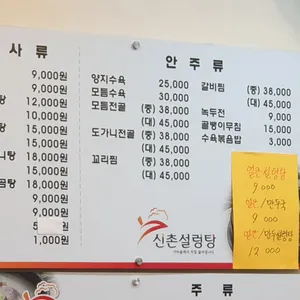 사 류
안 주 류
9,000원
9,000원
탕 12,000원
10,000원
탕 15,000원
15,000원
니탕 18,000원
15,000원
곰탕 18,000원
9,000원
9,000원
1,000원
양지수육 25,000
모듬수육 30,000
모듬전골 (중) 38,000
(대) 45,000
도가니전골 (중) 38,000
(대) 45,000
꼬리찜 (중) 38,000
(대) 45,000
갈비찜 (중) 38,000
(대) 45,000
녹두전 9,000
골뱅이무침 15,000
수육볶음밥 3,000
신촌설렁탕
얼큰설렁탕
9,000
얼큰/만두국
9,000
얼큰/만두설렁탕
12,000
주 류